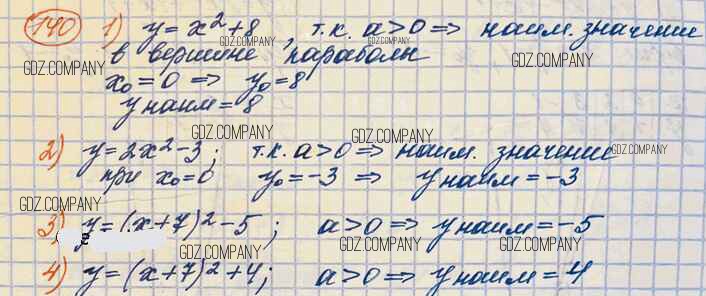 140 1) y = x² + 8, т.к. a > 0 => наим. значение
в вершине параболы
x₀ = 0 => y₀ = 8
y наим = 8
2) y = 2x² - 3; т.к. a > 0 => наим. значение
при x₀ = 0 y₀ = -3 => y наим = -3
3) y = (x + 7)² - 5; a > 0 => y наим = -5
4) y = (x + 7)² + 4; a > 0 => y наим = 4
GDZ.COMPANY
GDZ.COMPANY
GDZ.COMPANY
GDZ.COMPANY
GDZ.COMPANY
GDZ.COMPANY
GDZ.COMPANY
GDZ.COMPANY
GDZ.COMPANY
GDZ.COMPANY
GDZ.COMPANY